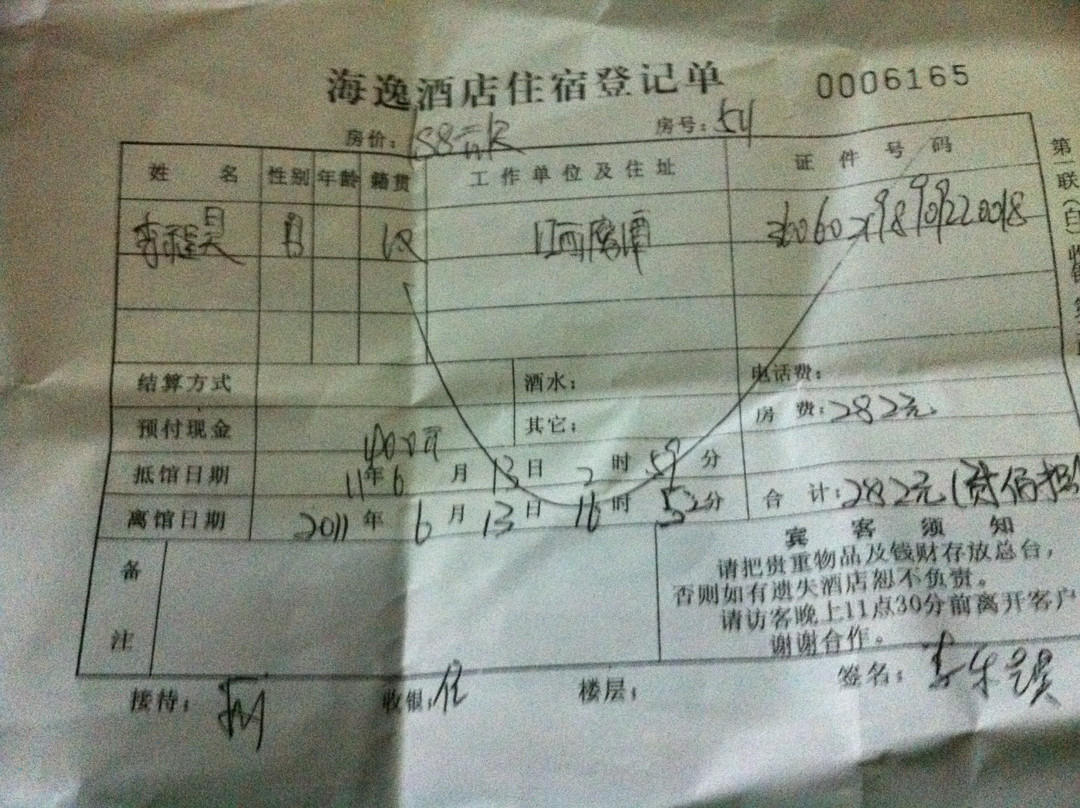 海逸酒店住宿登记单 0006165
房价: 房号:
姓 名 性别 年龄 籍贯 工作单位及住址 证件号码
李程昊 男 汉 江西鹰潭
结算方式 酒水: 电话费:
预付现金 400 其它: 房 费:282元
抵馆日期 11年6月13日2时59分
离馆日期 2011年6月13日16时52分 合 计:282元(贰佰捌
备注
宾客须知
请把贵重物品及钱财存放总台,
否则如有遗失酒店恕不负责。
请访客晚上11点30分前离开客户
谢谢合作。
接待: 收银: 楼层: 签名:
第一联(白)收